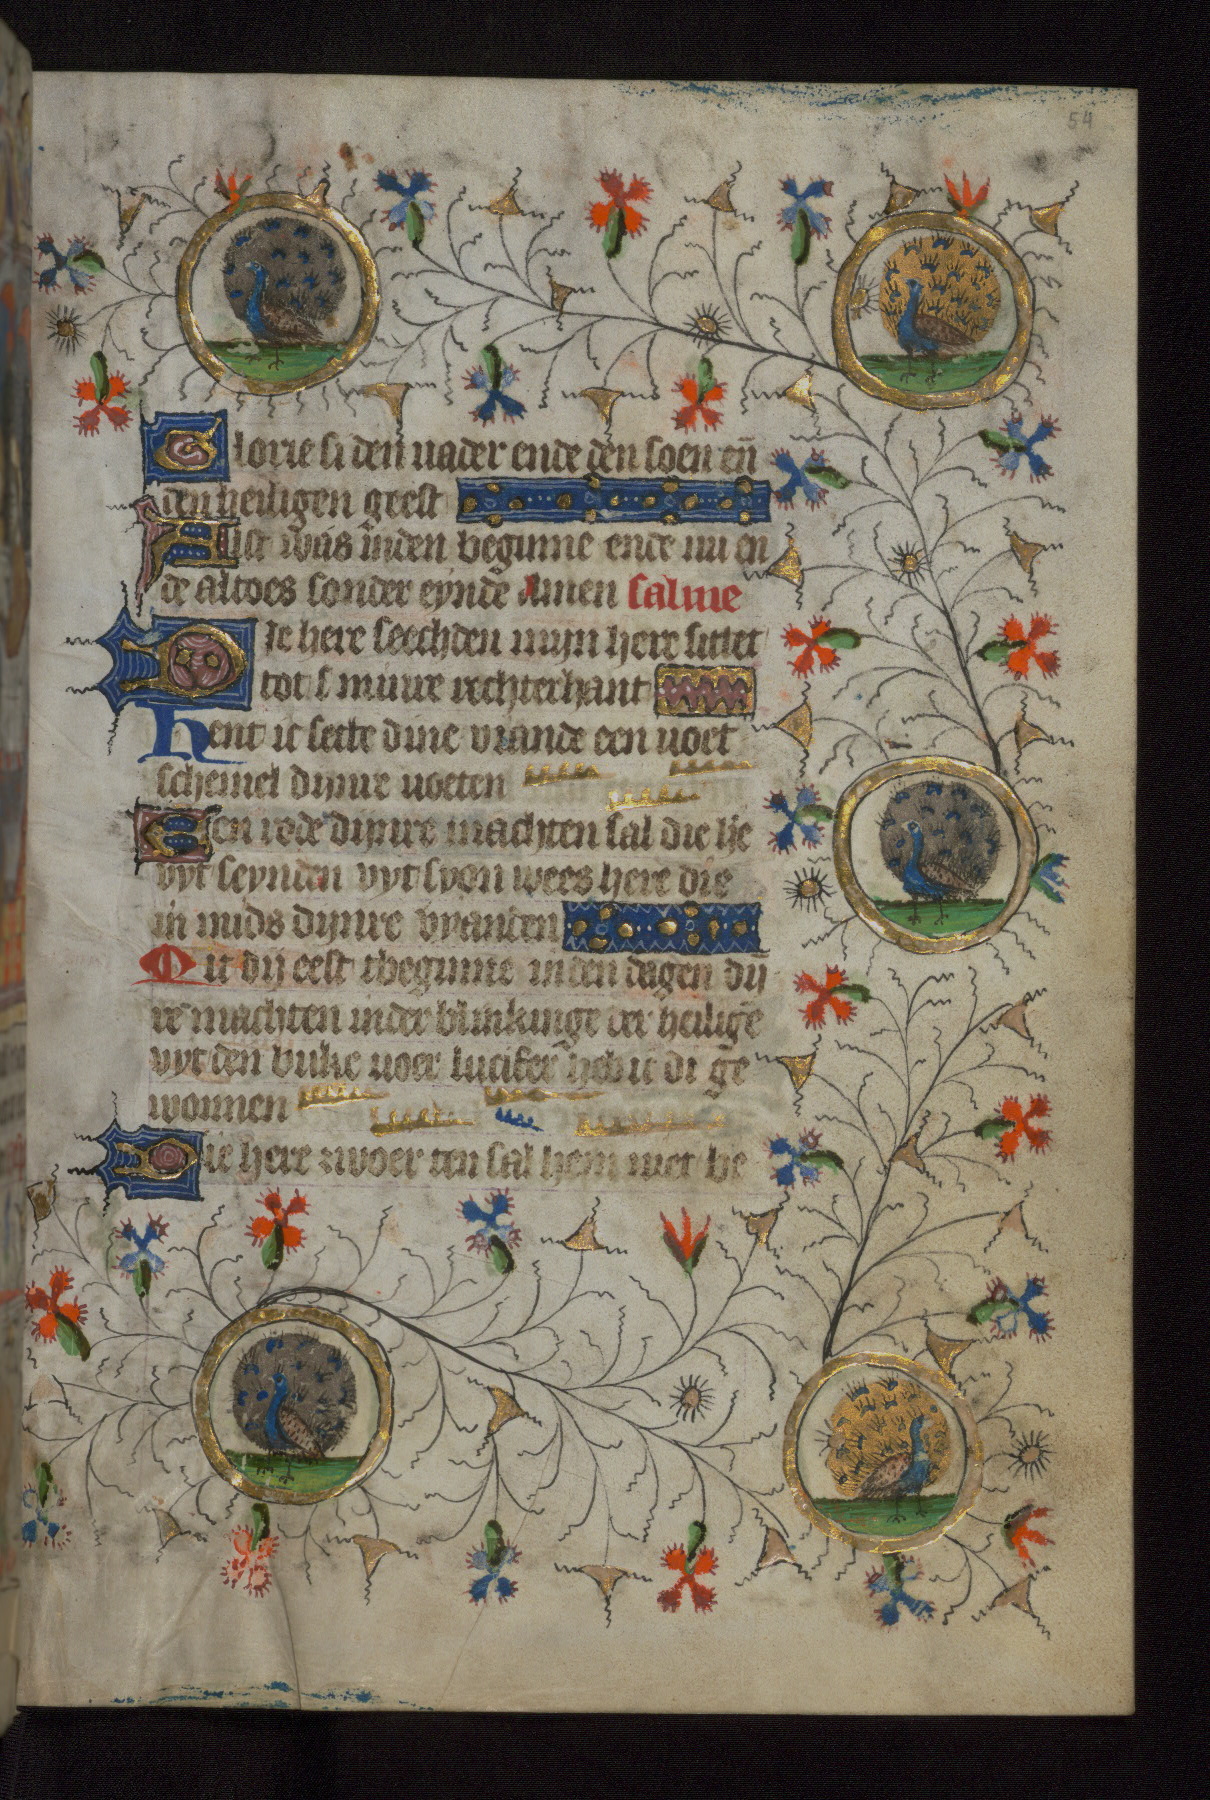 54
Glorie si den vader ende den soen en̄
den heiligen geest
Alst was inden beginne ende nu en
de altoes sonder eynde Amen salme
Die here seechden mijn here sittet
tot mijnre rechterhant
Hent ic sette dine viande een voet
schemel dijnre voeten
Een rode dijnre machten sal die he
uyt seynden uyt syon wees here die
in mids dijnre vyanden
Mit dij eest tbeginne inden dagen dij
re machten inder blinkinge der heiliḡe
uyt den buke voer lucifer heb ic di ḡe
wonnen
Die here zwoer en sal hem niet be